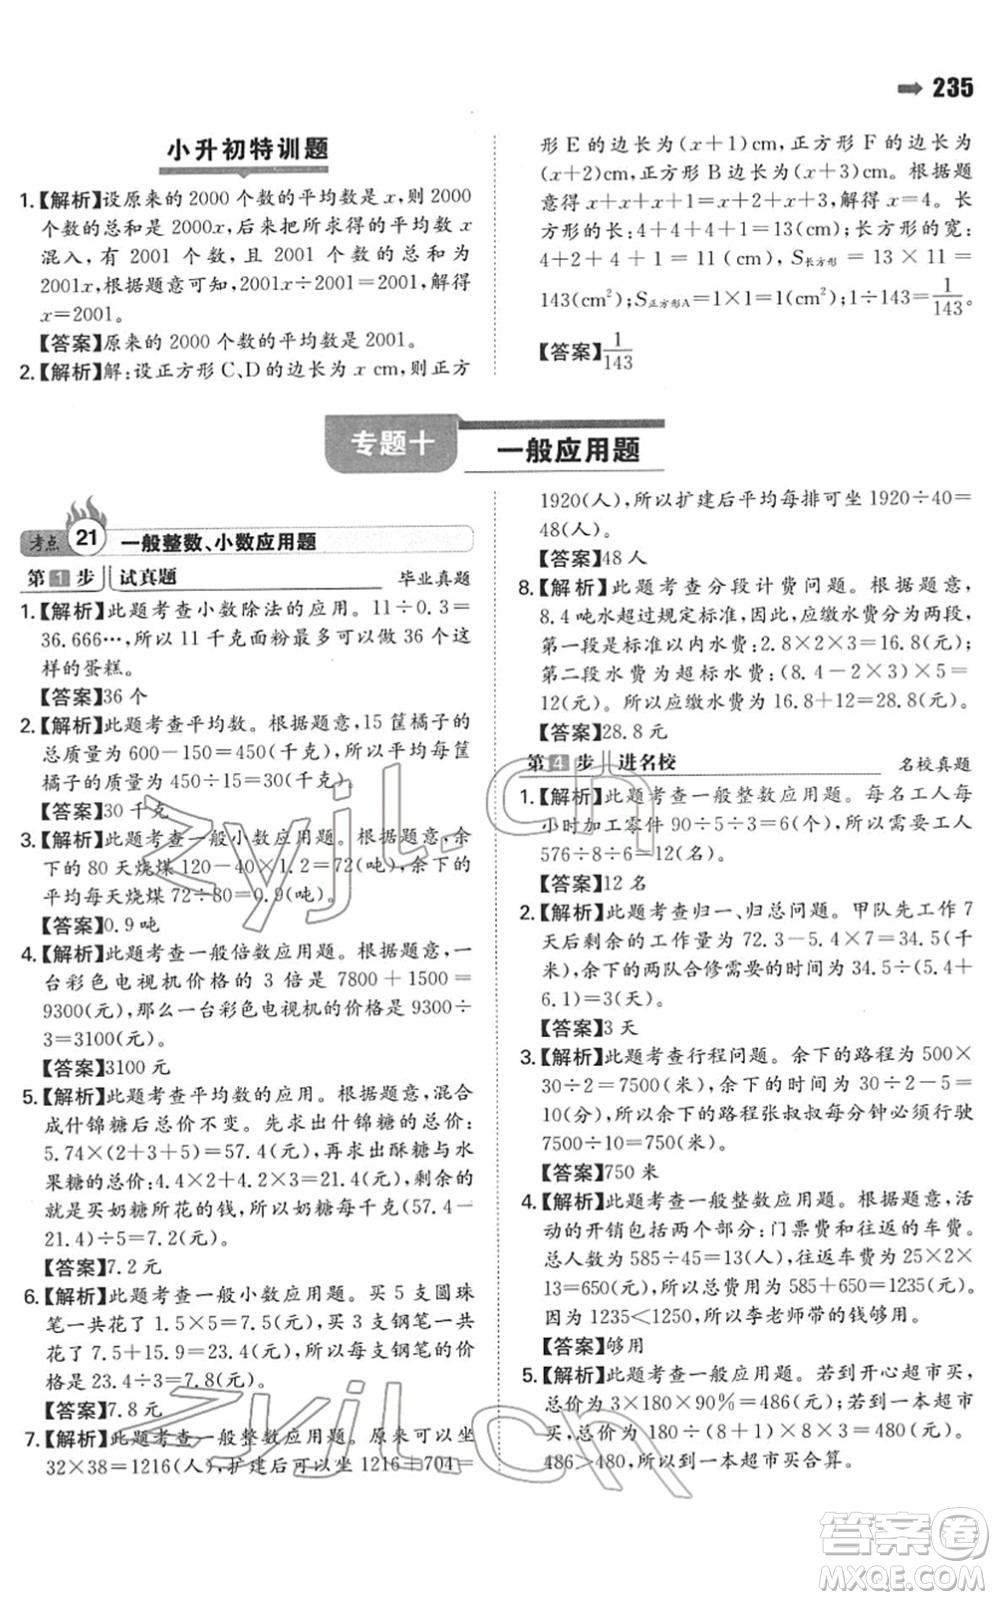 235
小升初特训题
1.【解析】设原来的 2000 个数的平均数是 x,则 2000
个数的总和是 2000x,后来把所求得的平均数 x
混入,有 2001 个数,这 2001 个数的总和为
2001x,根据题意可知,2001x÷2001=2001,解得
x=2001。
【答案】原来的 2000 个数的平均数是 2001。
2.【解析】解:设正方形 C、D 的边长为 x cm,则正方
形 E 的边长为(x+1)cm,正方形 F 的边长为
(x+2)cm,正方形 B 的边长为(x+3)cm。根据题
意得 x+x+x+1=x+2+x+3,解得 x=4。长
方形的长:4+4+4+1=13(cm),长方形的宽:
4+2+4+1=11(cm),S长方形=13×11=
143(cm²);S正方形A=1×1=1(cm²);1÷143=1/143。
【答案】1/143
专题十 一般应用题
考点 21 一般整数、小数应用题
第1步 试真题 毕业真题
1.【解析】此题考查小数除法的应用。11÷0.3=
36.666…,所以 11 千克面粉最多可以做 36 个这
样的蛋糕。
【答案】36 个
2.【解析】此题考查平均数。根据题意,15 筐橘子的
总质量为 600-150=450(千克),所以平均每筐
橘子的质量为 450÷15=30(千克)。
【答案】30 千克
3.【解析】此题考查一般小数应用题。根据题意,余
下的 80 天烧煤 120-40×1.2=72(吨),余下的
平均每天烧煤 72÷80=0.9(吨)。
【答案】0.9 吨
4.【解析】此题考查一般倍数应用题。根据题意,一
台彩色电视机价格的 3 倍是 7800+1500=
9300(元),那么一台彩色电视机的价格是 9300÷
3=3100(元)。
【答案】3100 元
5.【解析】此题考查平均数的应用。根据题意,混合
成什锦糖后总价不变。先求出什锦糖的总价:
5.74×(2+3+5)=57.4(元);再求出酥糖与水
果糖的总价:4.4×2+4.2×3=21.4(元),剩余的
就是买奶糖所花的钱,所以奶糖的单价为(57.4-
21.4)÷5=7.2(元)。
【答案】7.2 元
6.【解析】此题考查一般小数应用题。买 5 支圆珠
笔一共花了 1.5×5=7.5(元),买 3 支钢笔一共
花了 7.5+15.9=23.4(元),所以每支钢笔的价
格是 23.4÷3=7.8(元)。
【答案】7.8 元
7.【解析】此题考查一般整数应用题。原来可以坐
32×38=1216(人),扩建后可以坐 1216+704=
1920(人),所以扩建后平均每排可坐 1920÷40=
48(人)。
【答案】48 人
8.【解析】此题考查分段计费问题。根据题意,
8.4 吨水超过规定标准,因此,应缴水费分为两段,
第一段是标准以内水费:2.8×2×3=16.8(元);
第二段水费为超标水费:(8.4-2×3)×5=
12(元)。所以应缴水费为 16.8+12=28.8(元)。
【答案】28.8 元
第4步 进名校 名校真题
1.【解析】此题考查一般整数应用题。每名工人每
小时加工零件 90÷5÷3=6(个),所以需要工人
576÷8÷6=12(名)。
【答案】12 名
2.【解析】此题考查归一、归总问题。甲队先工作 7
天后剩余的工作量为 72.3-5.4×7=34.5(千
米),余下的两队合修需要的时间为 34.5÷(5.4+
6.1)=3(天)。
【答案】3 天
3.【解析】此题考查行程问题。余下的路程为 500×
30÷2=7500(米),余下的时间为 30÷2-5=
10(分)。所以余下的路程张叔叔每分钟必须行驶
7500÷10=750(米)。
【答案】750 米
4.【解析】此题考查一般整数应用题。根据题意,活
动的开销包括两个部分:门票费和往返的车费。
总人数为 585÷45=13(人),往返车费为 25×2×
13=650(元),所以总花费为 585+650=1235(元)。
因为 1235<1250,所以李老师带的钱够用。
【答案】够用
5.【解析】此题考查一般应用题。若到开心超市买,
总价为 3×180×90%=486(元),若到一本超市
买,总价为 180÷(8+1)×8×3=480(元)。
486>480,所以到一本超市买合算。
zyjl.cn
zyjl.cn
答案圈
MXQE.COM